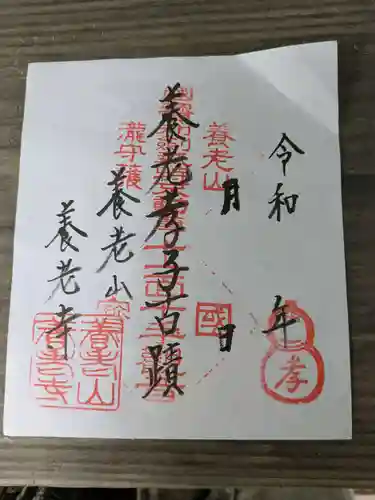 令和 年
月 日
養老山
國
養老孝子古蹟
瀧守護
養老山
養老寺
孝
養老山
養老寺